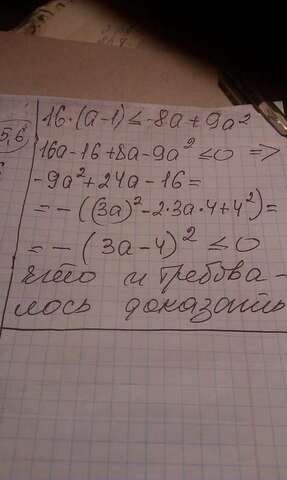 5,6
16·(a-1)≤-8a+9a²
16a-16+8a-9a²≤0 =>
-9a²+24a-16=
=-((3a)²-2·3a·4+4²)=
=-(3a-4)²≤0
что и требова-
лось доказать